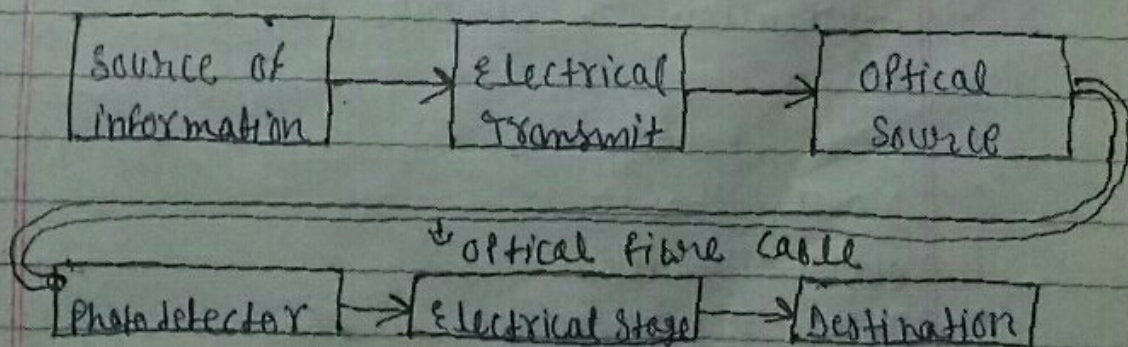 Source of
information
Electrical
Transmit
Optical
Source
Optical fibre cable
Photodetector
Electrical Stage
Destination